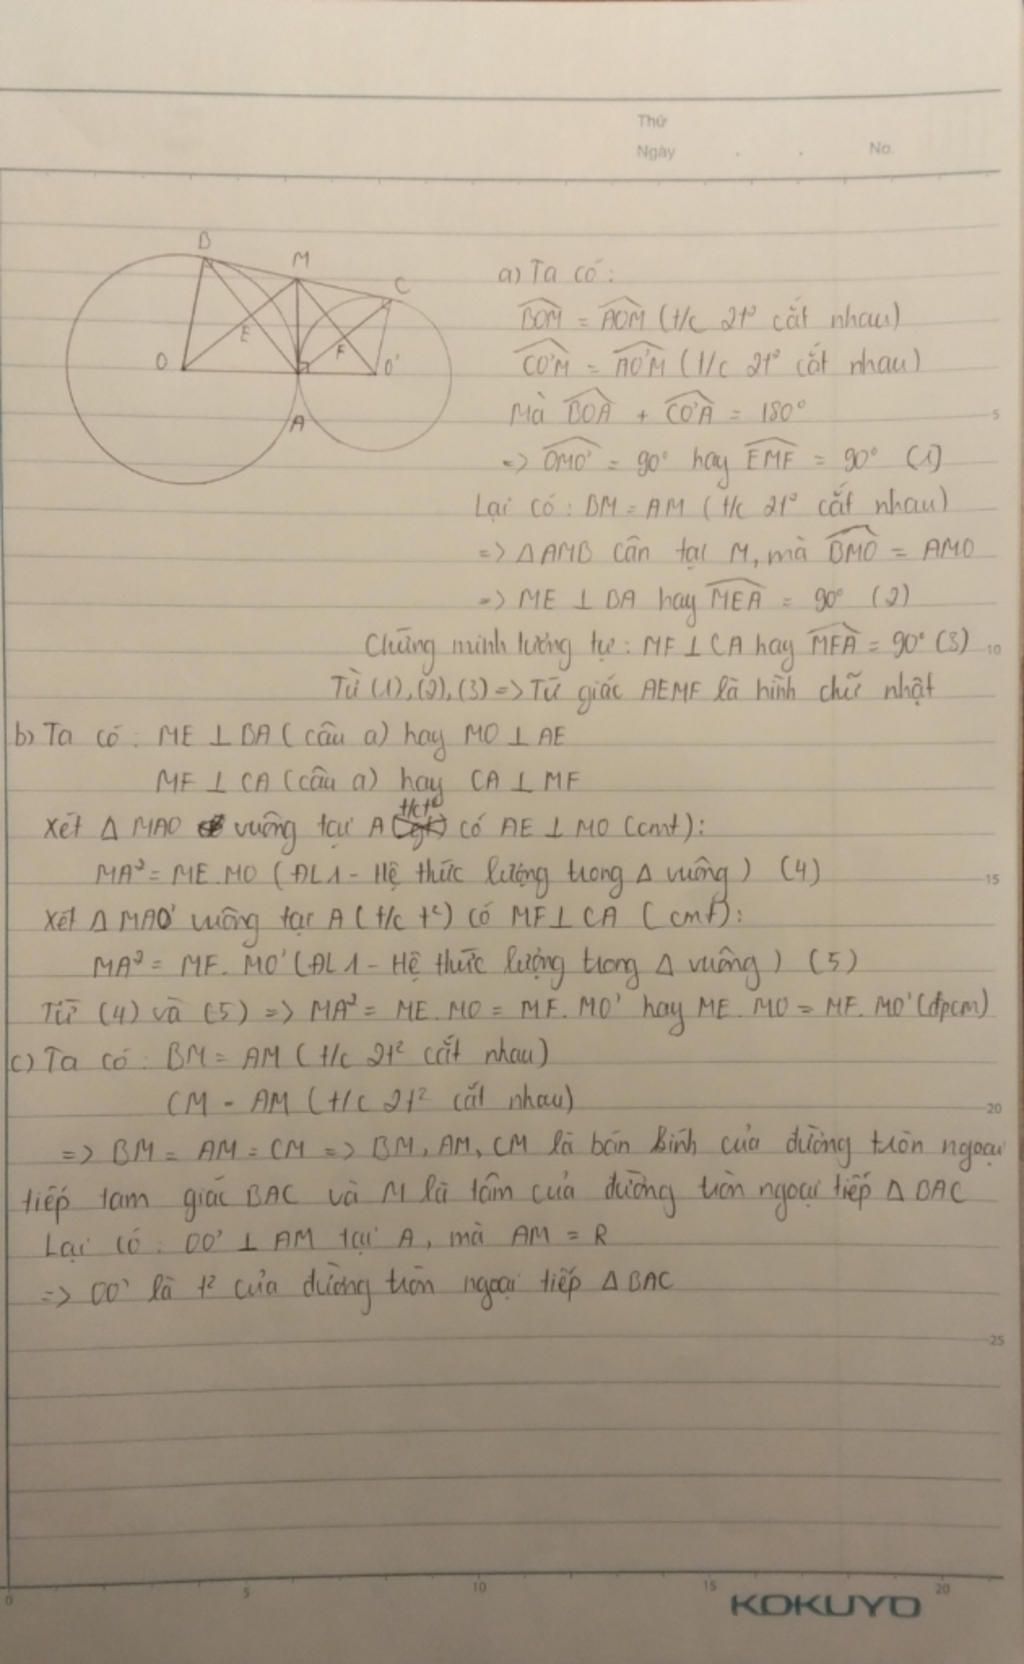 Thứ
Ngày . . No.
B
M
C
E
F
O
O'
A
a) Ta có:
BOM = AOM (t/c 2t² cắt nhau)
CO'M = AO'M (t/c 2t² cắt nhau)
Mà BOA + CO'A = 180°
5
=> OMO' = 90° hay EMF = 90° (1)
Lại có: BM = AM (t/c 2t² cắt nhau)
=> Δ AMB cân tại M, mà BMO = AMO
=> ME ⊥ BA hay MEA = 90° (2)
Chứng minh tương tự: MF ⊥ CA hay MFA = 90° (3)
10
Từ (1), (2), (3) => Tứ giác AEMF là hình chữ nhật
b) Ta có: ME ⊥ BA (câu a) hay MO ⊥ AE
MF ⊥ CA (câu a) hay CA ⊥ MF
t/c t²
Xét Δ MAO vuông tại A có AE ⊥ MO (cmt):
MA² = ME.MO (ĐL1 - Hệ thức lượng trong Δ vuông) (4)
15
Xét Δ MAO' vuông tại A (t/c t²) có MF ⊥ CA (cmt):
MA² = MF. MO' (ĐL1 - Hệ thức lượng trong Δ vuông) (5)
Từ (4) và (5) => MA² = ME. MO = MF. MO' hay ME. MO = MF. MO' (đpcm)
c) Ta có: BM = AM (t/c 2t² cắt nhau)
CM = AM (t/c 2t² cắt nhau)
20
=> BM = AM = CM => BM, AM, CM là bán kính của đường tròn ngoại
tiếp tam giác BAC và M là tâm của đường tròn ngoại tiếp Δ BAC
Lại có: OO' ⊥ AM tại A, mà AM = R
=> OO' là t² của đường tròn ngoại tiếp Δ BAC
25
0 5 10 15 20
KOKUYO